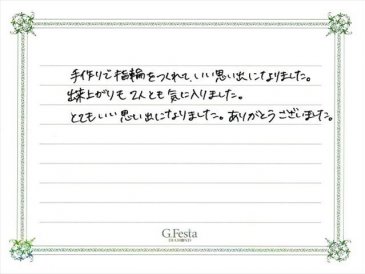 手作りで指輪をつくれて、いい思い出になりました。
出来上がりも2人とも気に入りました。
とてもいい思い出になりました。ありがとうございました。
G.Festa